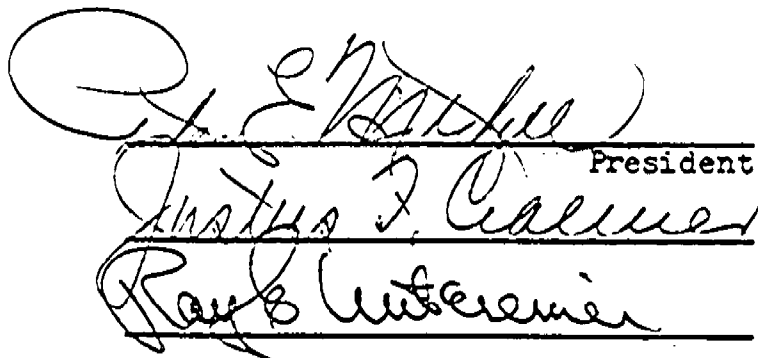 President
Justus F. Craemer
Ray E. Untereiner